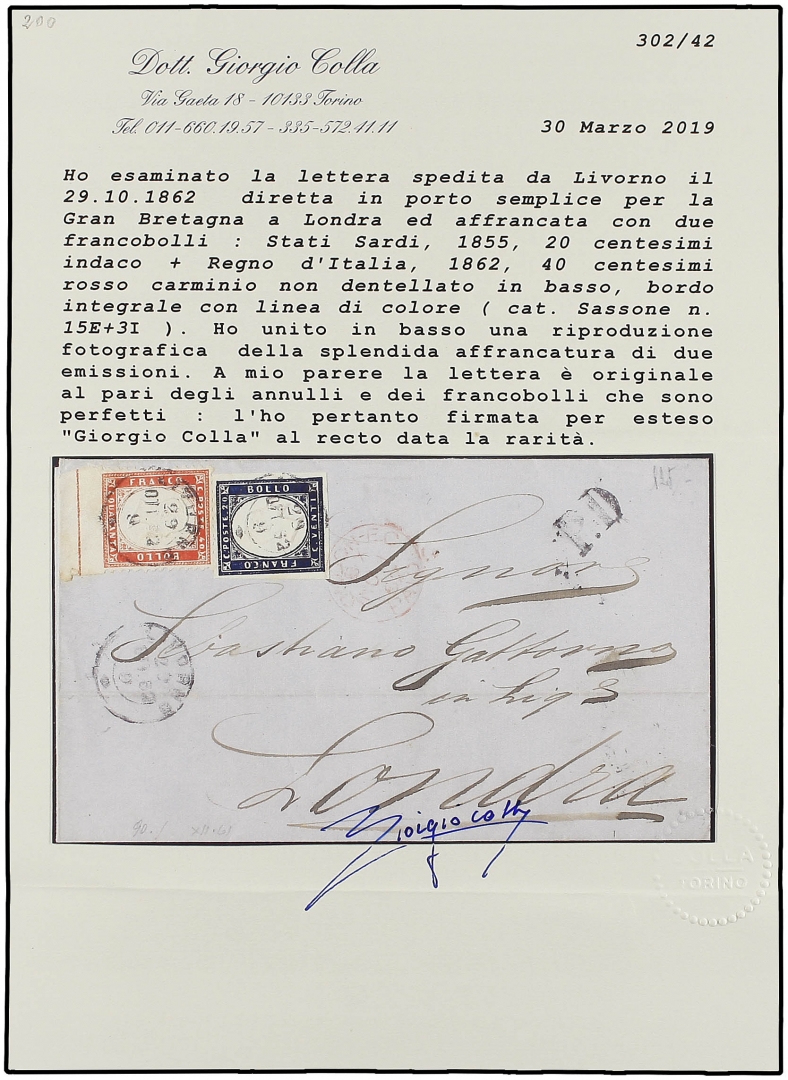 200
302/42
Dott. Giorgio Colla
Via Gaeta 18 - 10133 Torino
Tel. 011-660.19.57 - 335-572.41.11
30 Marzo 2019
Ho esaminato la lettera spedita da Livorno il
29.10.1862 diretta in porto semplice per la
Gran Bretagna a Londra ed affrancata con due
francobolli : Stati Sardi, 1855, 20 centesimi
indaco + Regno d'Italia, 1862, 40 centesimi
rosso carminio non dentellato in basso, bordo
integrale con linea di colore ( cat. Sassone n.
15E+3I ). Ho unito in basso una riproduzione
fotografica della splendida affrancatura di due
emissioni. A mio parere la lettera è originale
al pari degli annulli e dei francobolli che sono
perfetti : l'ho pertanto firmata per esteso
"Giorgio Colla" al recto data la rarità.
FRANCO
C.POSTE 40
C.QUARANTA
BOLLO
BOLLO
C.POSTE.20
C.VENTI
FRANCO
P.D
Signore
Sebastiano Gattorno
LIVORNO
Londra
Giorgio Colla
COLLA
TORINO